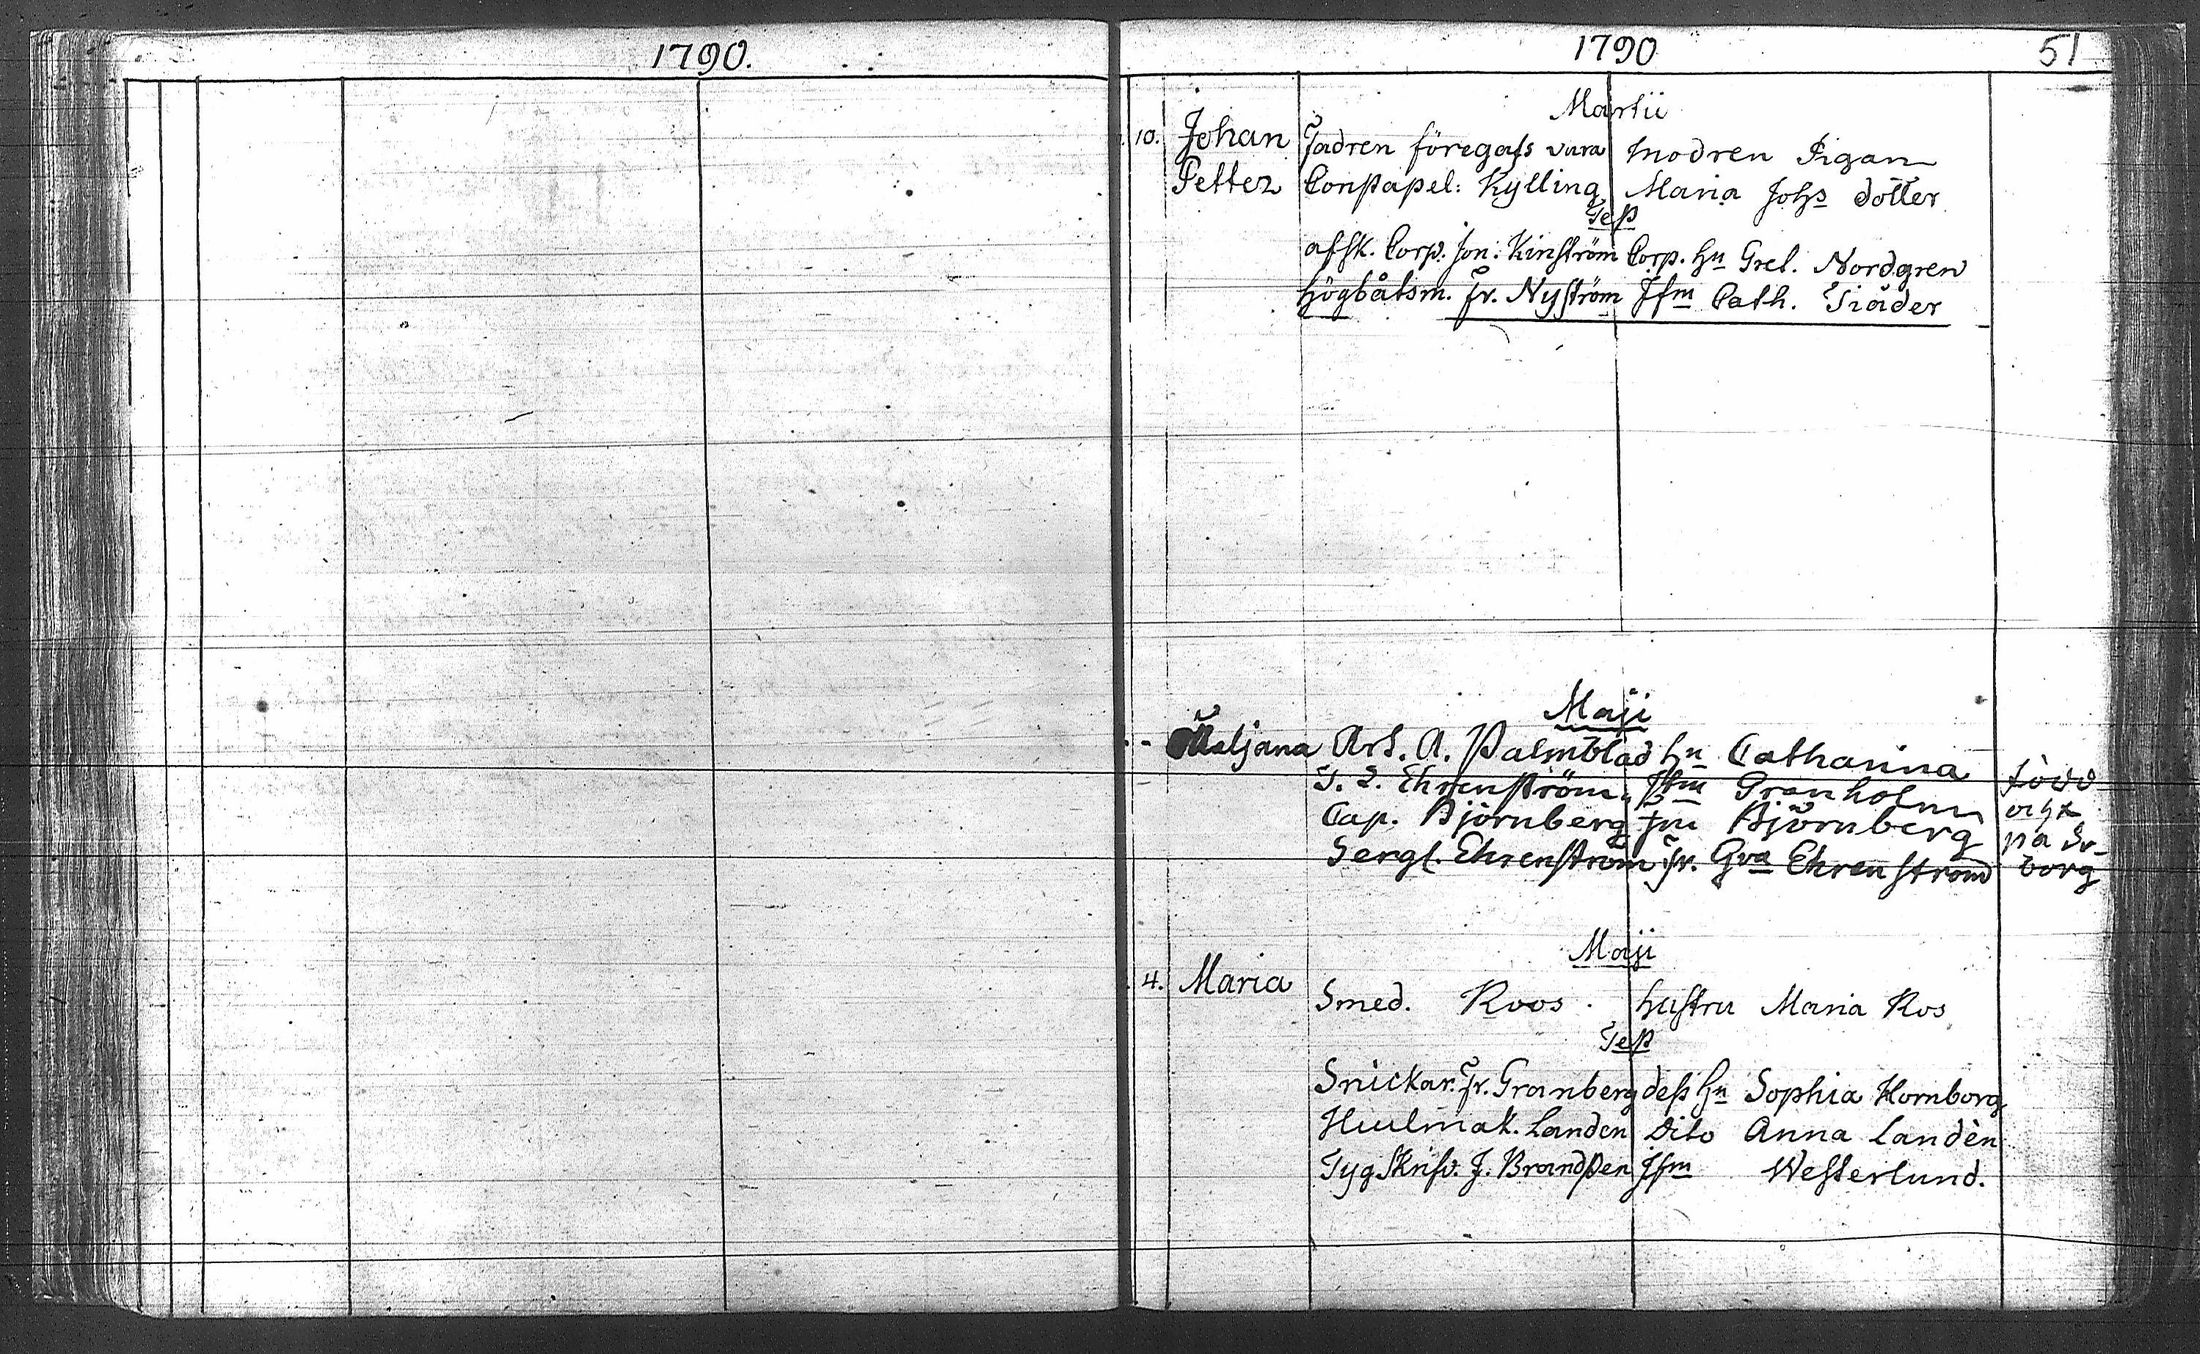 1790.
1790 51
Martii
10. Johan Fadren föregafs vara Modren Pigan
Petter Constapel: Kylling Maria Johs dotter
Test
afsk. Corp. Jon: Kinström Corp. Hu Gret. Nordgren
Högbåtsm. Fr. Nyström Jfm Cath. Tiäder
Maji
Uljana Art. A. Palmblad Hu Catharina
J. L. Ehrenström Jfm Granholm född
Cap. Björnberg Fru Björnberg
Sergt. Ehrenström Fr. Gva Ehrenström på Sv-
borg
Maji
4. Maria Smed. Roos. Hustru Maria Ros
Test
Snickar. Fr. Granberg dess Hu Sophia Hornborg
Hiulmak. Landen Dito Anna Landèn
Tygskrifv. J. Brandsten Jfm Westerlund.